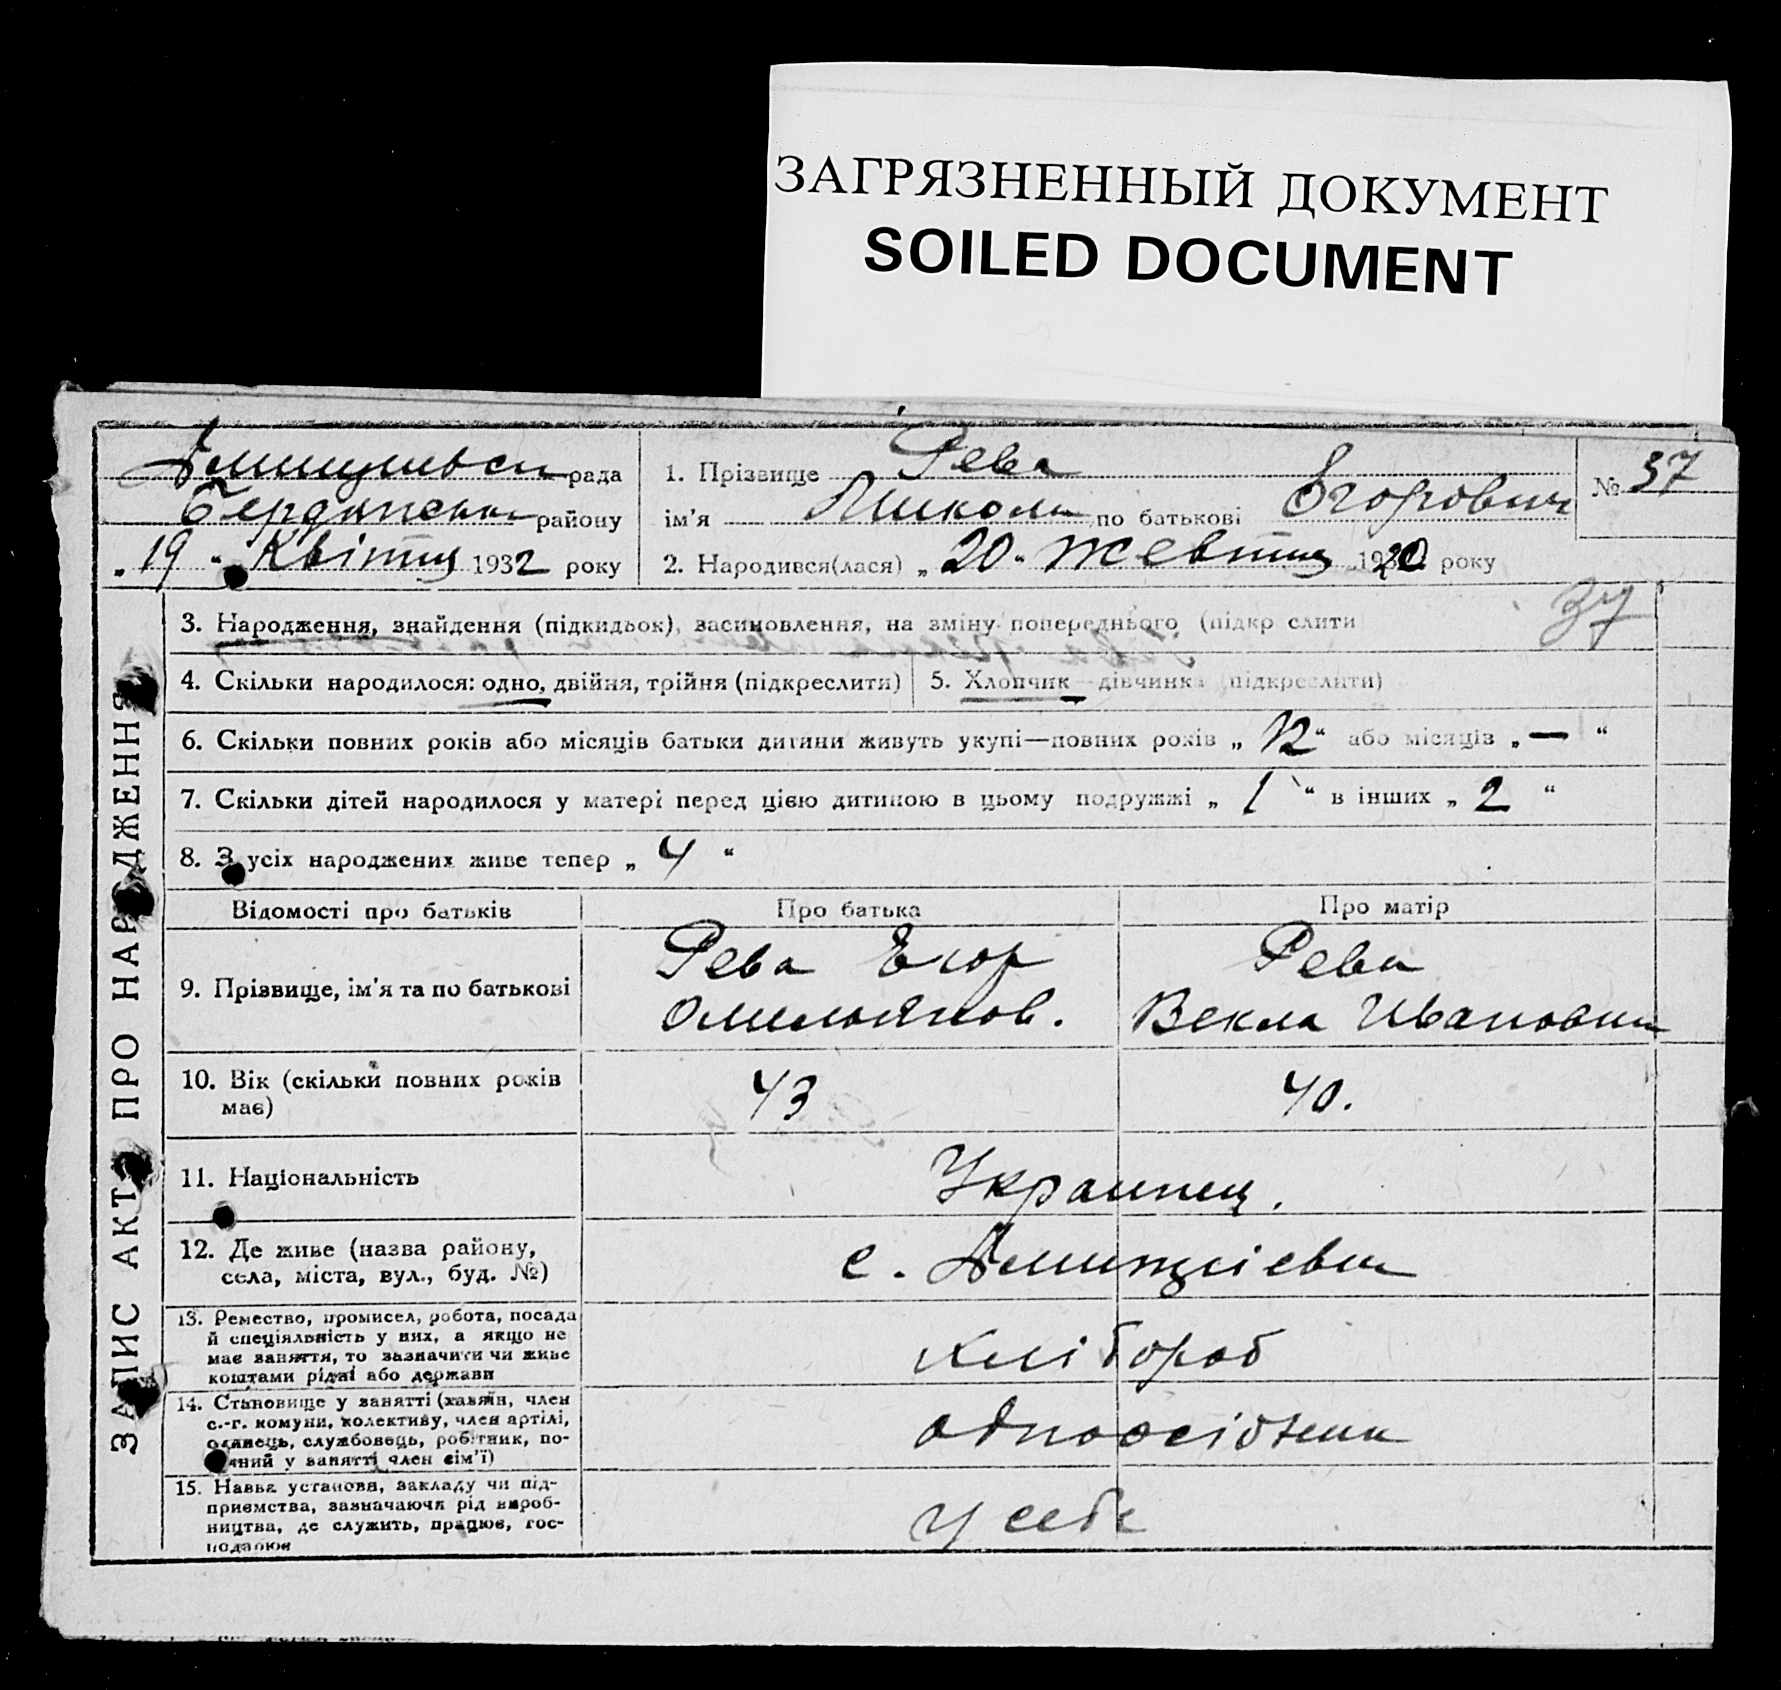 ЗАГРЯЗНЕННЫЙ ДОКУМЕНТ
SOILED DOCUMENT
рада
Бердянська району
„19“ Квітня 1932 року
1. Прізвище Рева
ім’я Микола по батькові Єгорович
2. Народився(лася) „20“ Жовтня року
№ 37
37
ЗАПИС АКТУ ПРО НАРОДЖЕННЯ
3. Народження, знайдення (підкидьок), засиновлення, на зміну попереднього (підкр слити
4. Скільки народилося: одно, двійня, трійня (підкреслити)
5. Хлопчик—дівчинка (підкреслити)
6. Скільки повних років або місяців батьки дитини живуть укупі—повних років „12“ або місяців „—“
7. Скільки дітей народилося у матері перед цією дитиною в цьому подружжі „1“ в інших „2“
8. З усіх народжених живе тепер „4“
Відомості про батьків
Про батька
Про матір
9. Прізвище, ім’я та по батькові
Рева Егор
Омельянов.
Рева
Векла Ивановна
10. Вік (скільки повних років
має)
43
40.
11. Національність
Украинец.
12. Де живе (назва району,
села, міста, вул., буд. №)
с.
13. Ремество, промисел, робота, посада
й спеціяльність у них, а якщо не
має заняття, то зазначити чи живе
коштами рідні або держави
хлібороб
14. Становище у занятті (хазяїн, член
с.-г. комуни, колективу, член артілі,
одинець, службовець, робітник, по-
у занятті член сім’ї)
одноосібник
15. Назва установи, закладу чи під-
приємства, зазначаючи рід вироб-
ництва, де служить, працює, гос-
подарює
у себе